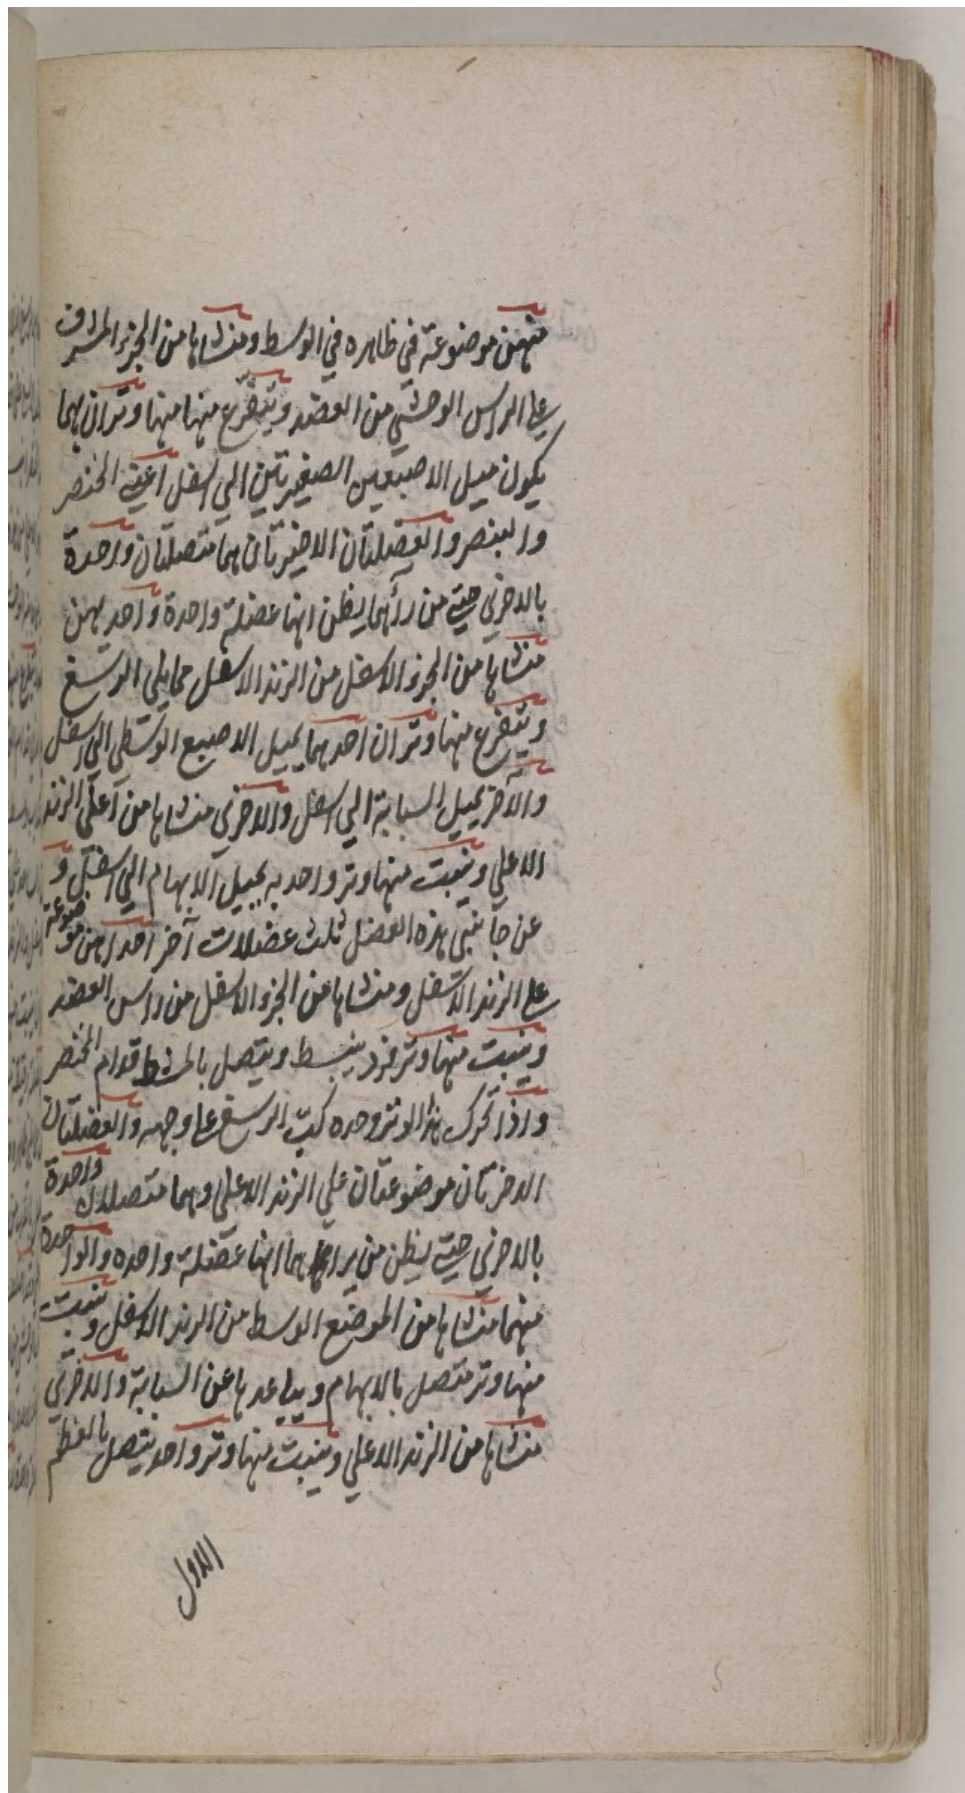 منهن موضوعة في ظاهره في الوسط ومنشاها من الجزء المشرف
على الراس الوحشي من العضد ويتفرع منها منها وتران بهما
يكون ميل الاصبعين الصغيرتين الي اسفل اعني الخنصر
والبنصر والعضلتان الاخيرتان هما متصلتان واحدة
بالاخري حتي من رآهما ليظن انها عضلة واحدة واحد يهن
منشاها من الجزء الاسفل من الزند الاسفل مما يلي الرسغ
ويتفرع منها وتران احدهما يميل الاصبع الوسطي الي اسفل
والآخر يميل السبابة الي اسفل والاخري منشاها من اعلي الزند
الاعلي وينبت منها وتر واحد به يميل الابهام الي اسفل و
عن جانبي هذه العضل ثلث عضلات آخر احداهن موضوعة
على الزند الاسفل ومنشاها من الجزء الاسفل من راس العضد
وينبت منها وتر فرد ينبسط ويتصل بالمشط قدام الخنصر
واذا تحرك هذا الوتر وحده كبّ الرسغ على وجهه والعضلتان
الاخرتان موضوعتان علي الزند الاعلي وهما متصلتان واحدة
بالاخري حتي ليظن من يراهما انها عضلة واحده والواحدة
منهما منشاها من الموضع الوسط من الزند الاسفل وينبت
منها وتر متصل بالابهام ويباعدها عن السبابة والاخري
منشاها من الزند الاعلي وينبت منها وتر واحد يتصل بالعظم
الاول